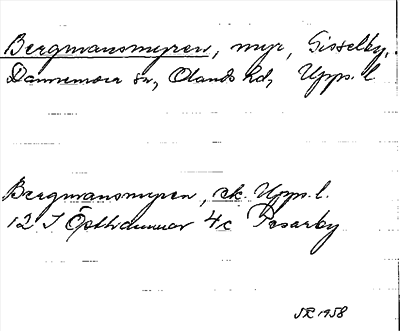 Bergmansmyren, myr, Gisselby,
Dannemora sn, Olands hd, Upps. l.
Bergmansmyren, ek. Upps. l.
12 I Östhammar 4c Pesarby
SR 1958